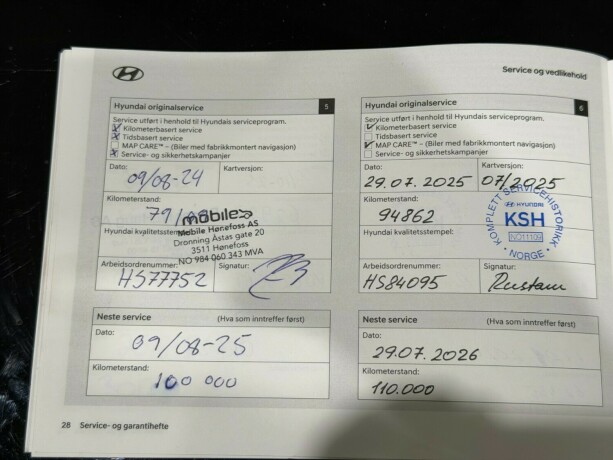 Service og vedlikehold
Hyundai originalservice 5
Service utført i henhold til Hyundais serviceprogram.
Kilometerbasert service
Tidsbasert service
MAP CARE™ – (Biler med fabrikkmontert navigasjon)
Service- og sikkerhetskampanjer
Dato: Kartversjon:
09/08-24
Kilometerstand:
79/
mobile
Mobile Hønefoss AS
Dronning Åstas gate 20
3511 Hønefoss
NO 984 060 343 MVA
Hyundai kvalitetsstempel:
Arbeidsordrenummer: Signatur:
HS77752
Neste service (Hva som inntreffer først)
Dato:
09/08-25
Kilometerstand:
100 000
Hyundai originalservice 6
Service utført i henhold til Hyundais serviceprogram.
Kilometerbasert service
Tidsbasert service
MAP CARE™ – (Biler med fabrikkmontert navigasjon)
Service- og sikkerhetskampanjer
Dato: Kartversjon:
29.07.2025 07/2025
Kilometerstand:
94862
Hyundai kvalitetsstempel:
KOMPLETT SERVICEHISTORIKK
HYUNDAI
KSH
NO11109
• NORGE •
Arbeidsordrenummer: Signatur:
HS84095 Rustam
Neste service (Hva som inntreffer først)
Dato:
29.07.2026
Kilometerstand:
110.000
28 Service- og garantihefte